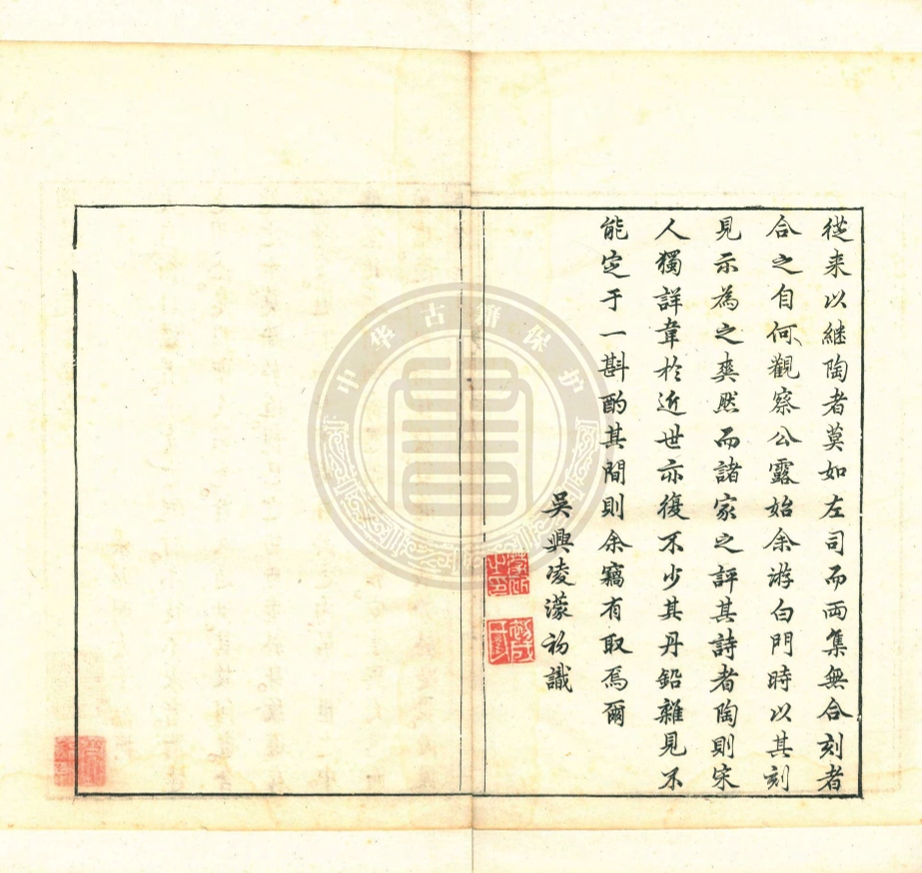 從来以継陶者莫如左司而兩集無合刻者
合之自何觀察公露始余游白門時以其刻
見示為之爽然而諸家之評其詩者陶則宋
人獨詳韋於近世亦復不少其丹鉛雜見不
能定于一斟酌其間則余竊有取焉爾
吳興凌濛初識
中华古籍保护